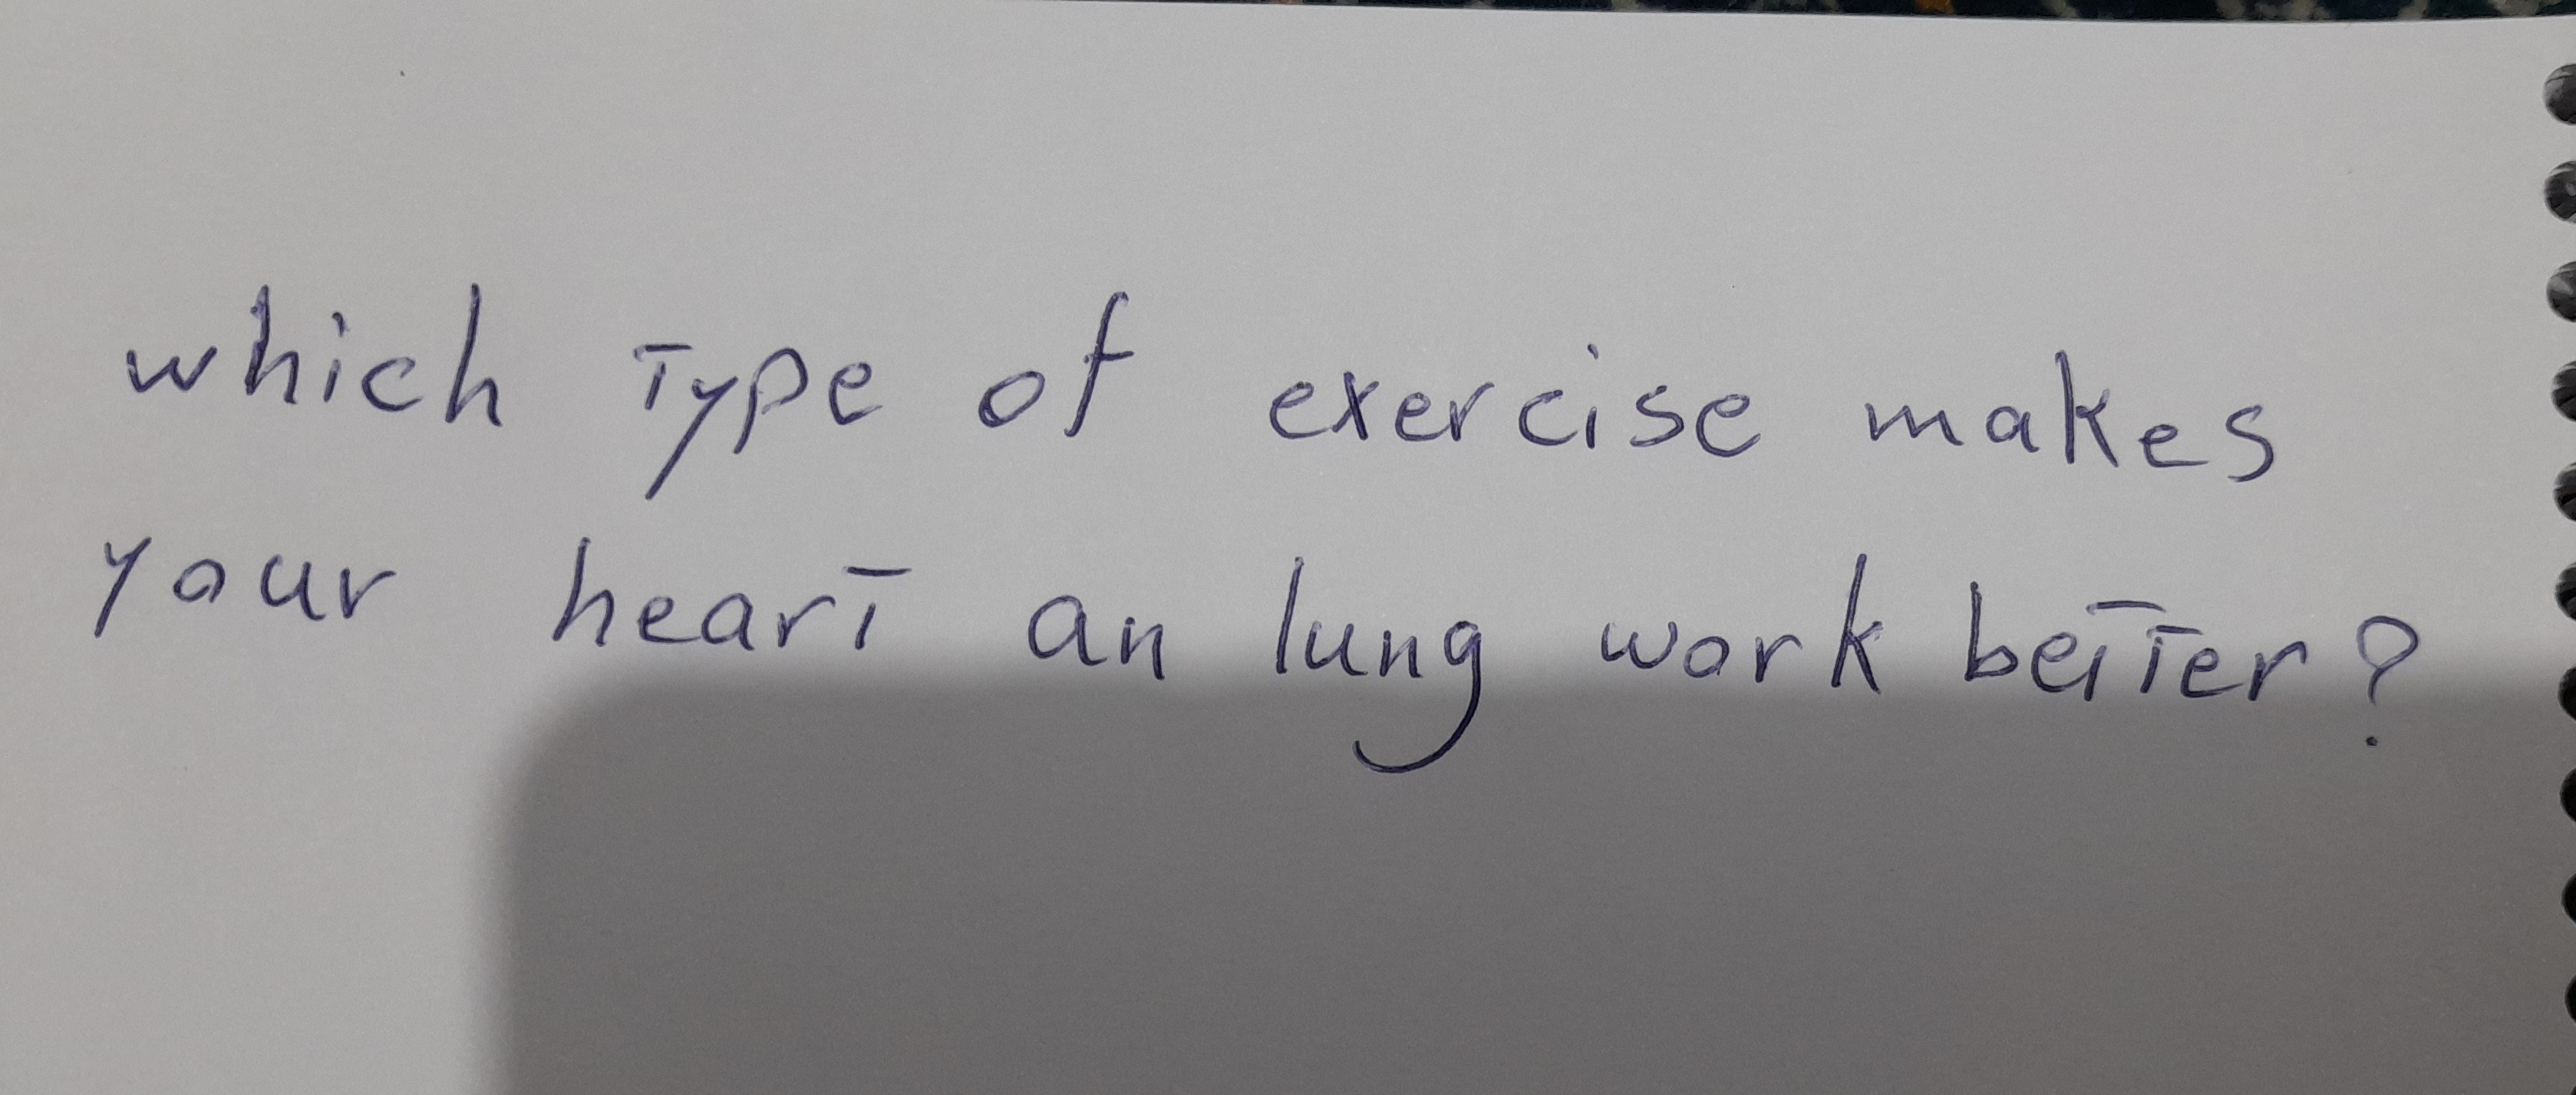 which type of exercise makes
your heart an lung work better?